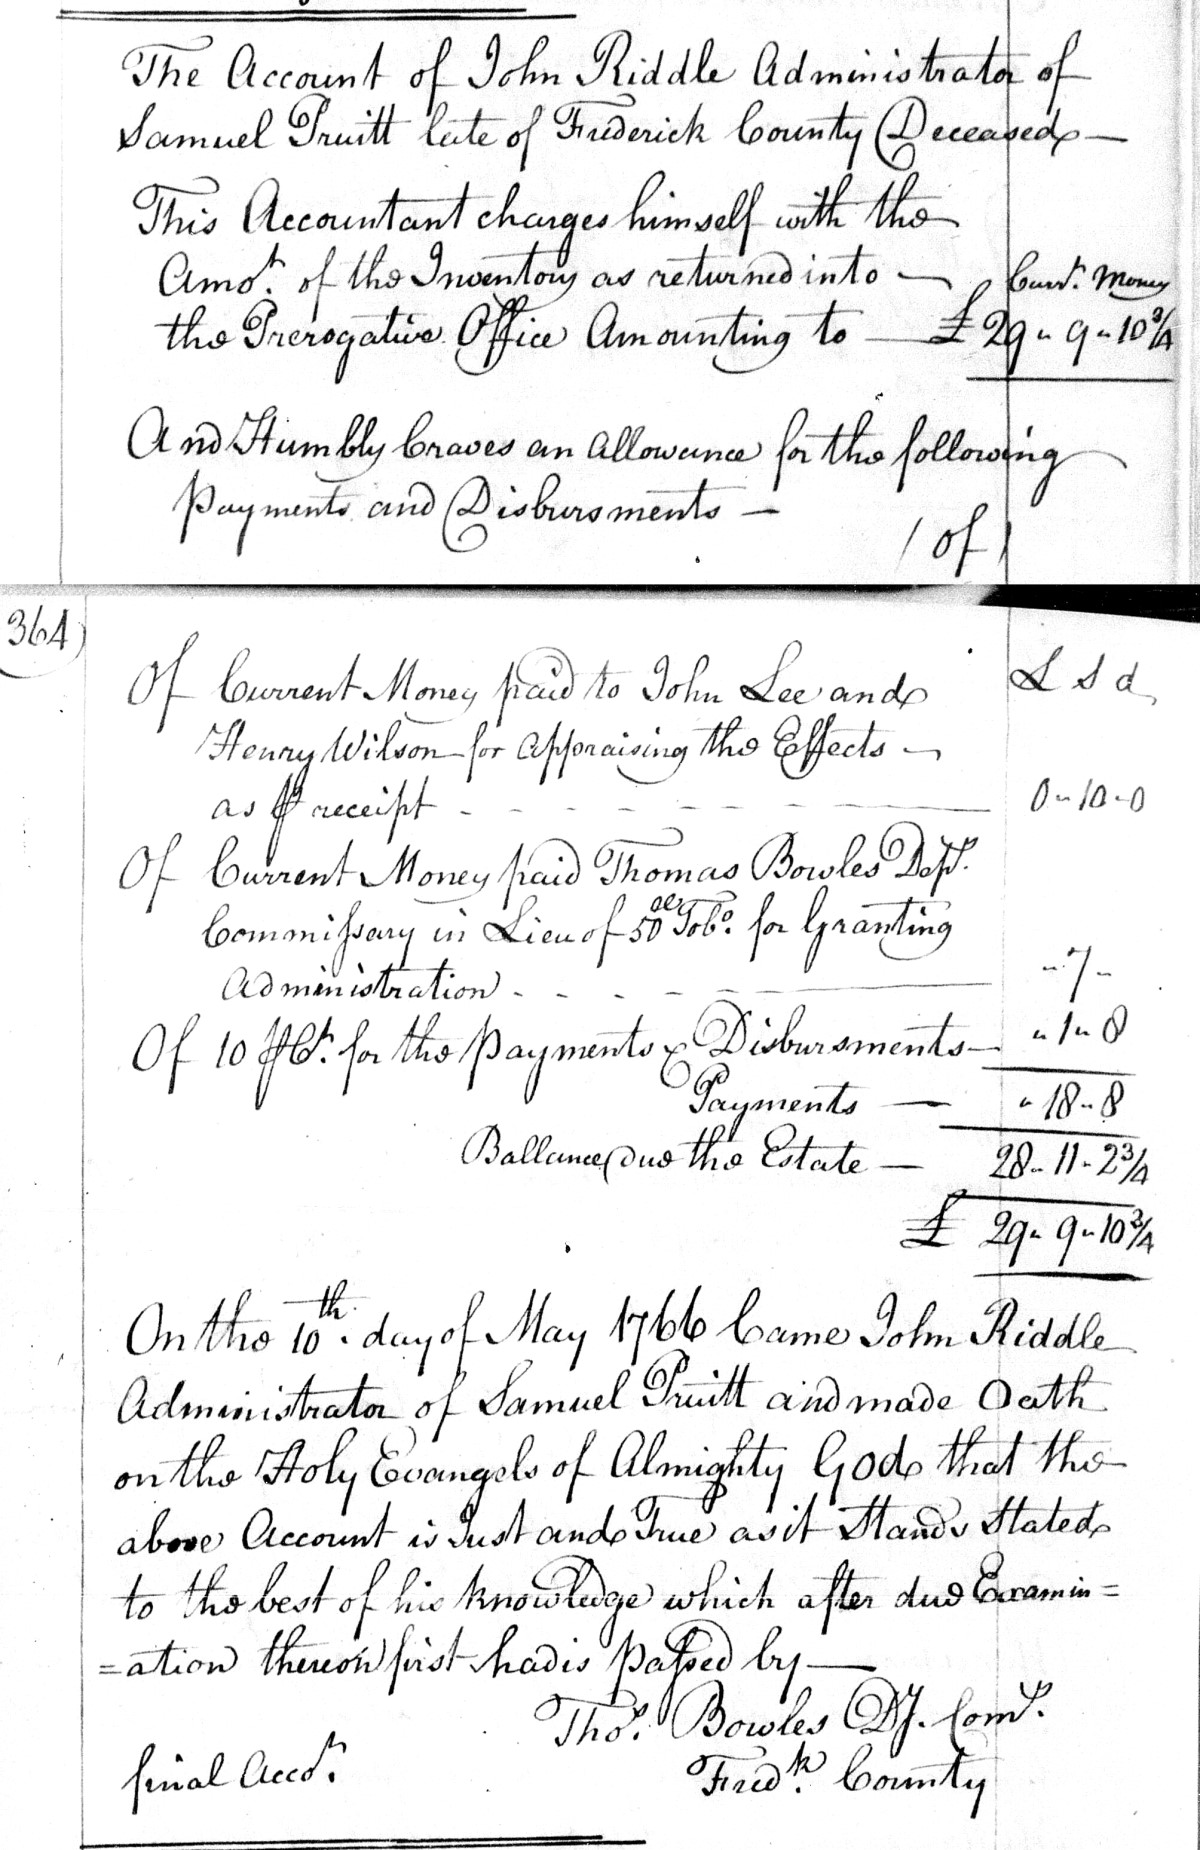 The Account of John Riddle Administrator of
Samuel Pruitt late of Frederick County Deceased —
This Accountant charges himself with the
Amot. of the Inventory as returned into — Curt. Money
the Prerogative Office Amounting to — £ 29 " 9 " 10 3/4
And Humbly Craves an Allowance for the following
Payments and Disbursments —
/ Of /
364)
Of Current Money paid to John Lee and £ S d
Henry Wilson for Appraising the Effects —
as ⅌ receipt - - - - - — 0 " 10 " 0
Of Current Money paid Thomas Bowles Depy.
Commissary in Lieu of 50 Tobo. for Granting
Administration - - - - — " 7 "
Of 10 ⅌ Ct. for the Payments & Disbursments — " 1 " 8
Payments — " 18 " 8
Ballance due the Estate — 28 " 11 " 2 3/4
£ 29 " 9 " 10 3/4
On the 10th. day of May 1766 Came John Riddle
Administrator of Samuel Pruitt and made Oath
on the Holy Evangels of Almighty God that the
above Account is Just and True as it Stands Stated
to the best of his Knowledge which after due Examin=
=ation thereon first had is Passed by —
Thos. Bowles Dy. Comy.
final Accot. Fredk. County